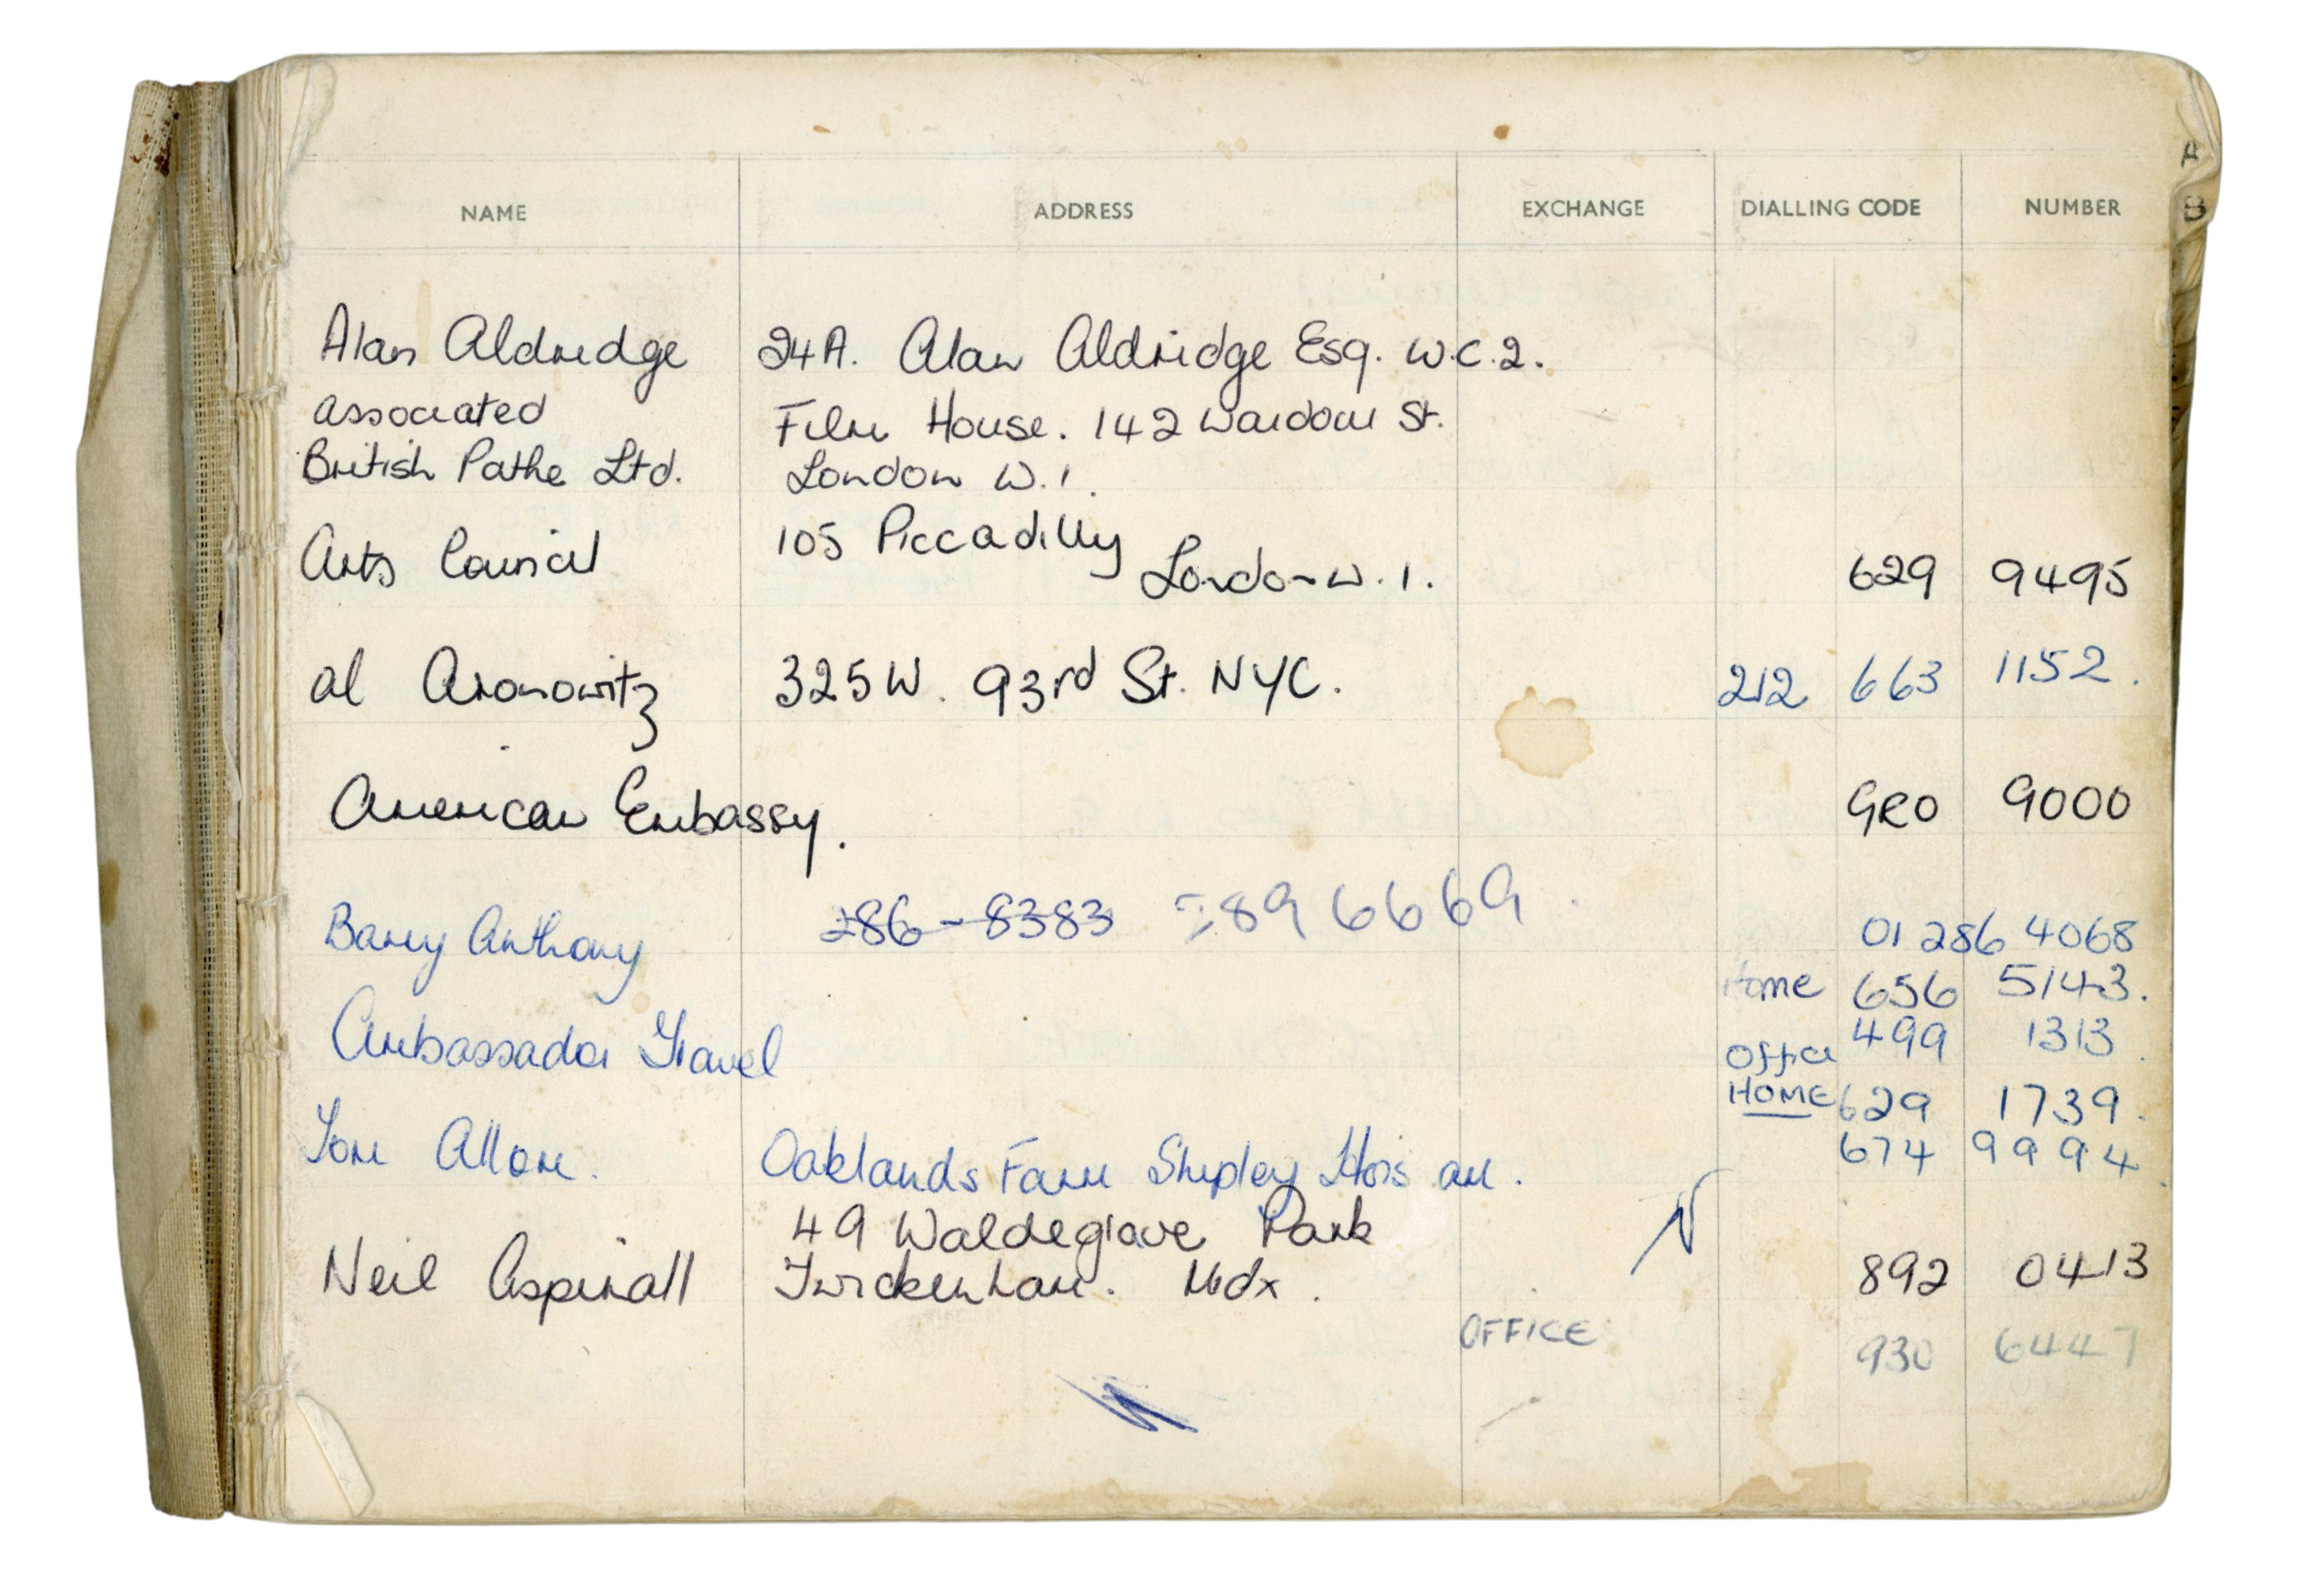 NAME ADDRESS EXCHANGE DIALLING CODE NUMBER
A
B
Alan Aldridge 24A. Alan Aldridge Esq. W.C.2.
Associated Film House. 142 Wardour St.
British Pathe Ltd. London W.1.
Arts Council 105 Piccadilly London W.1. 629 9495
Al Aronowitz 325 W. 93rd St. NYC. 212 663 1152.
American Embassy. GRO 9000
Barry Anthony 286-8383 289 6669. 01 286 4068
Home 656 5143.
Ambassador Travel Office 499 1313.
HOME 629 1739.
Tom Allom. Oaklands Farm Shipley Horsham. 674 9994.
49 Waldegrave Park
Neil Aspinall Twickenham. Midx. 892 0413
OFFICE 930 6447